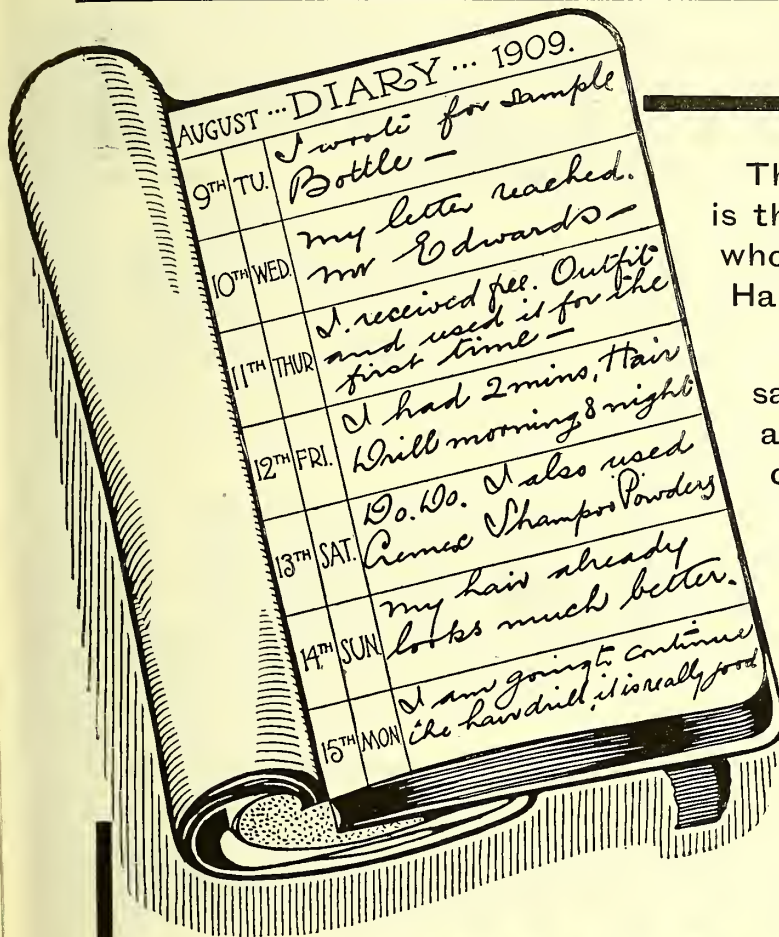 AUGUST ... DIARY ... 1909.
9TH TU. I wrote for sample
Bottle —
10TH WED. my letter reached.
mr Edwards —
11TH THUR I. received free. Outfit
and used it for the
first time —
12TH FRI. I had 2 mins, Hair
Drill morning & night
13TH SAT. Do. Do. I also used
Cremex Shampoo Powders
14TH SUN. my hair already
looks much better.
15TH MON I am going to continue
the hair drill, it is really good
Th
is th
who
Ha
sa
a